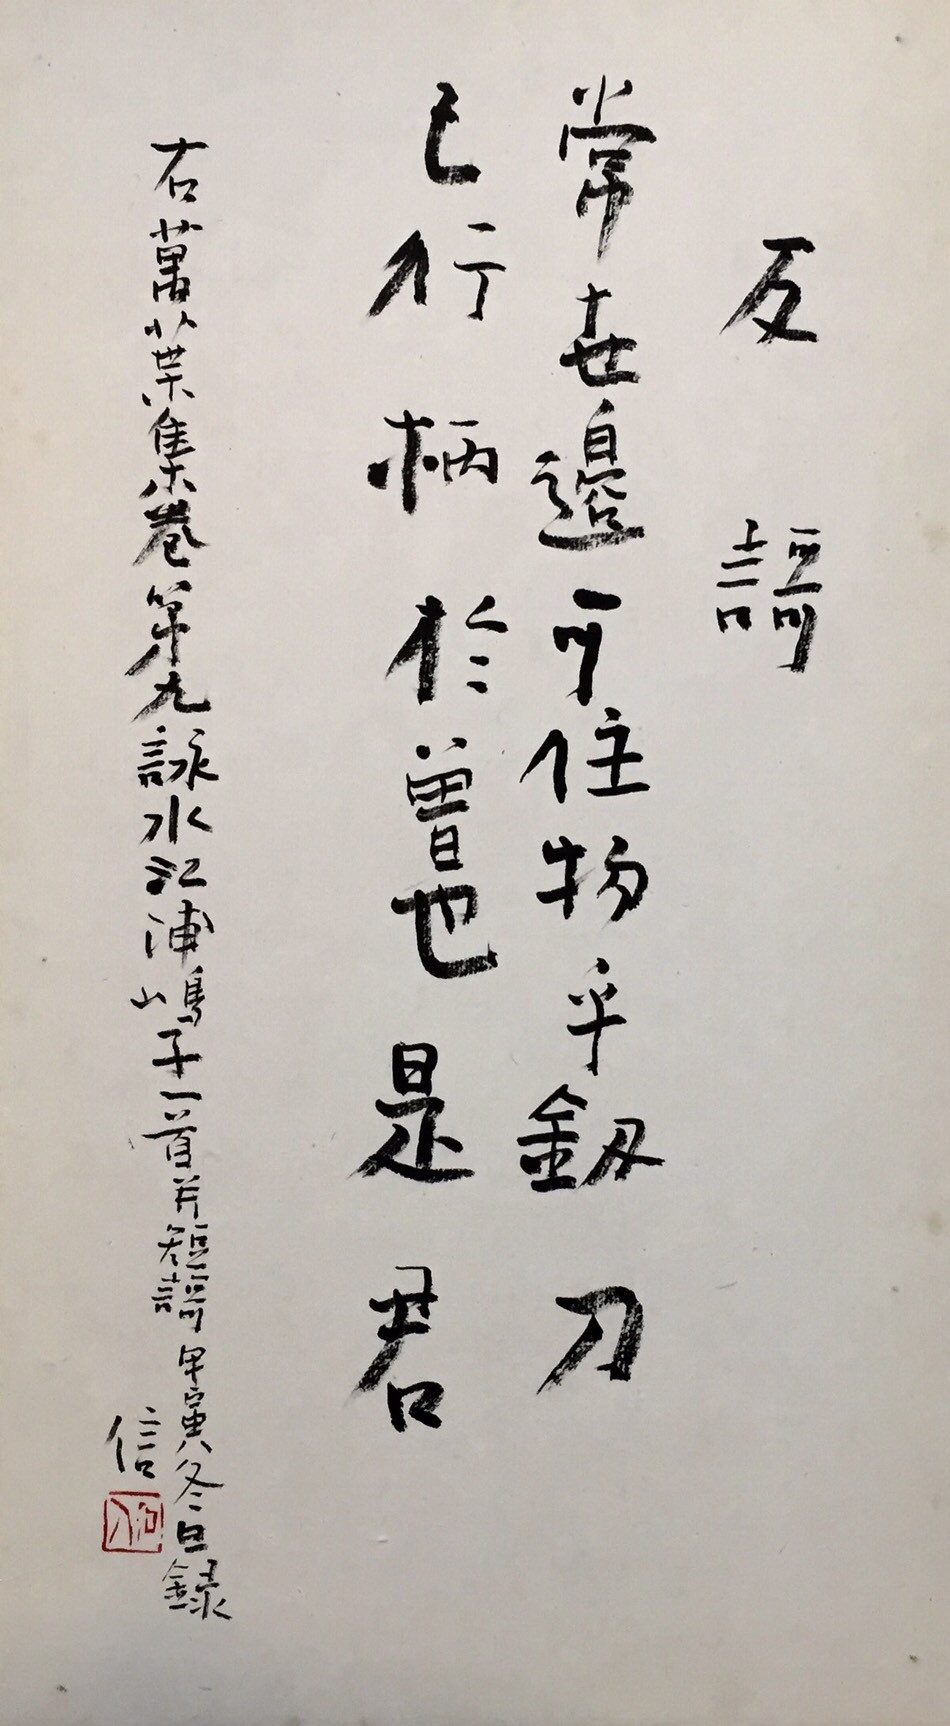 反謌
常世邊可住物乎釼刀
己行柄於曽也是君
右萬葉集巻第九詠水江浦嶋子一首并短謌甲寅冬日録
信